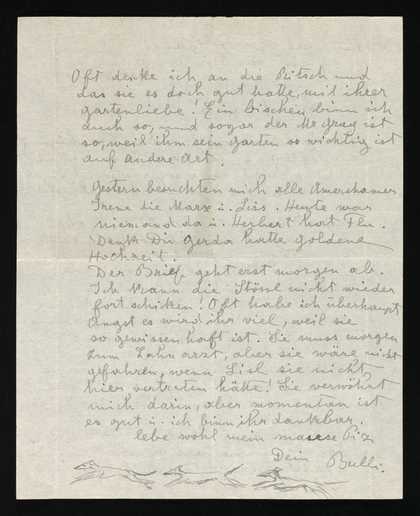 Oft denke ich an die Pitsch und
das sie es doch gut hatte, mit ihrer
gartenliebe! Ein bischen binn ich
auch so, und sogar der Mc Gray ist
so, weil ihm sein Garten so wichtig ist
auf andere Art.
Gestern besuchten mich alle Amerikaner
Irene die Marx u. Liss. Heute war
niemand da u. Herbert hat Flu.
Denk Dir Gerda hatte goldene
Hochzeit.
Der Brief geht erst morgen ab.
Ich kann die Stössl nicht wieder
fort schiken! Oft habe ich überhaupt
Angst es wird ihr viel, weil sie
so gewissenhaft ist. Sie muss morgen
zum Zahnarzt, aber sie wäre nicht
gefahren, wenn Lisl sie nicht
hier vertreten hätte! Sie verwöhnt
mich darin, aber momentan ist
es gut u. ich binn ihr dankbar.
lebe wohl mein Piz
Dein Bulli.